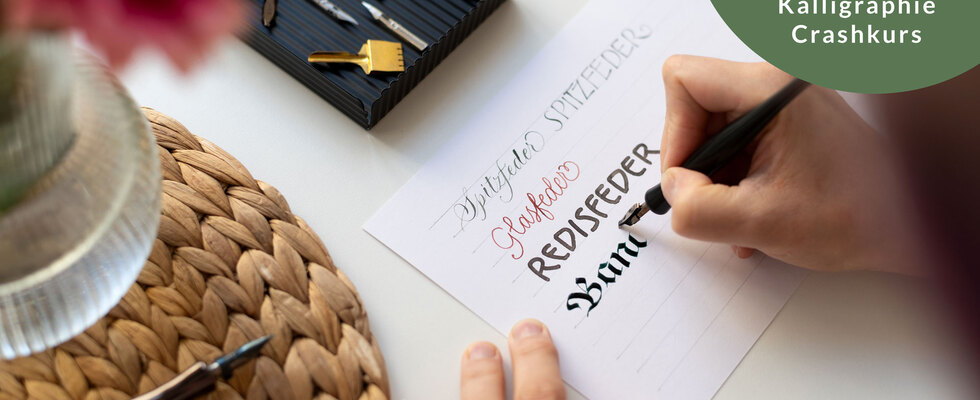 Kalligraphie
Crashkurs
Spitzfeder SPITZFEDER
Glasfeder
REDISFEDER
Band